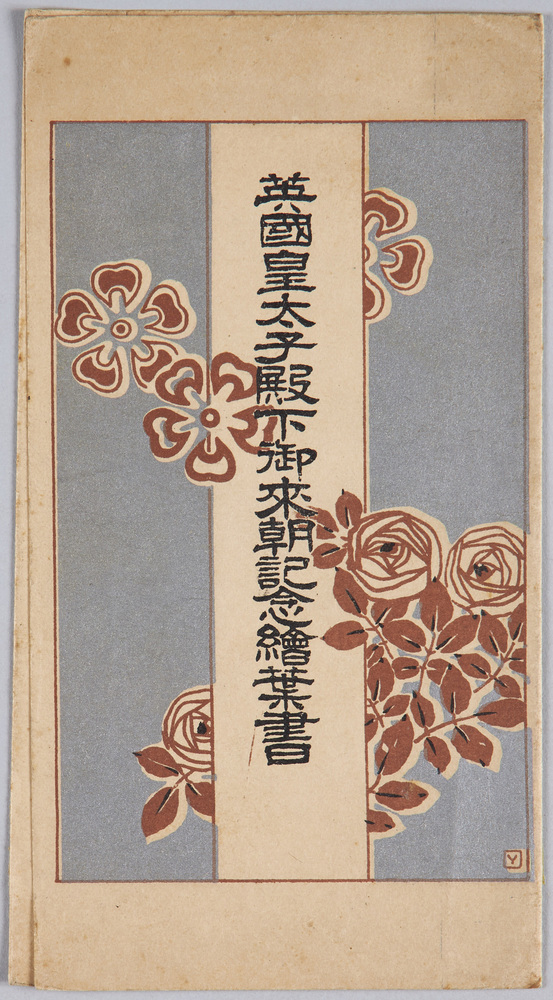 英國皇太子殿下御來朝記念繪葉書
Y